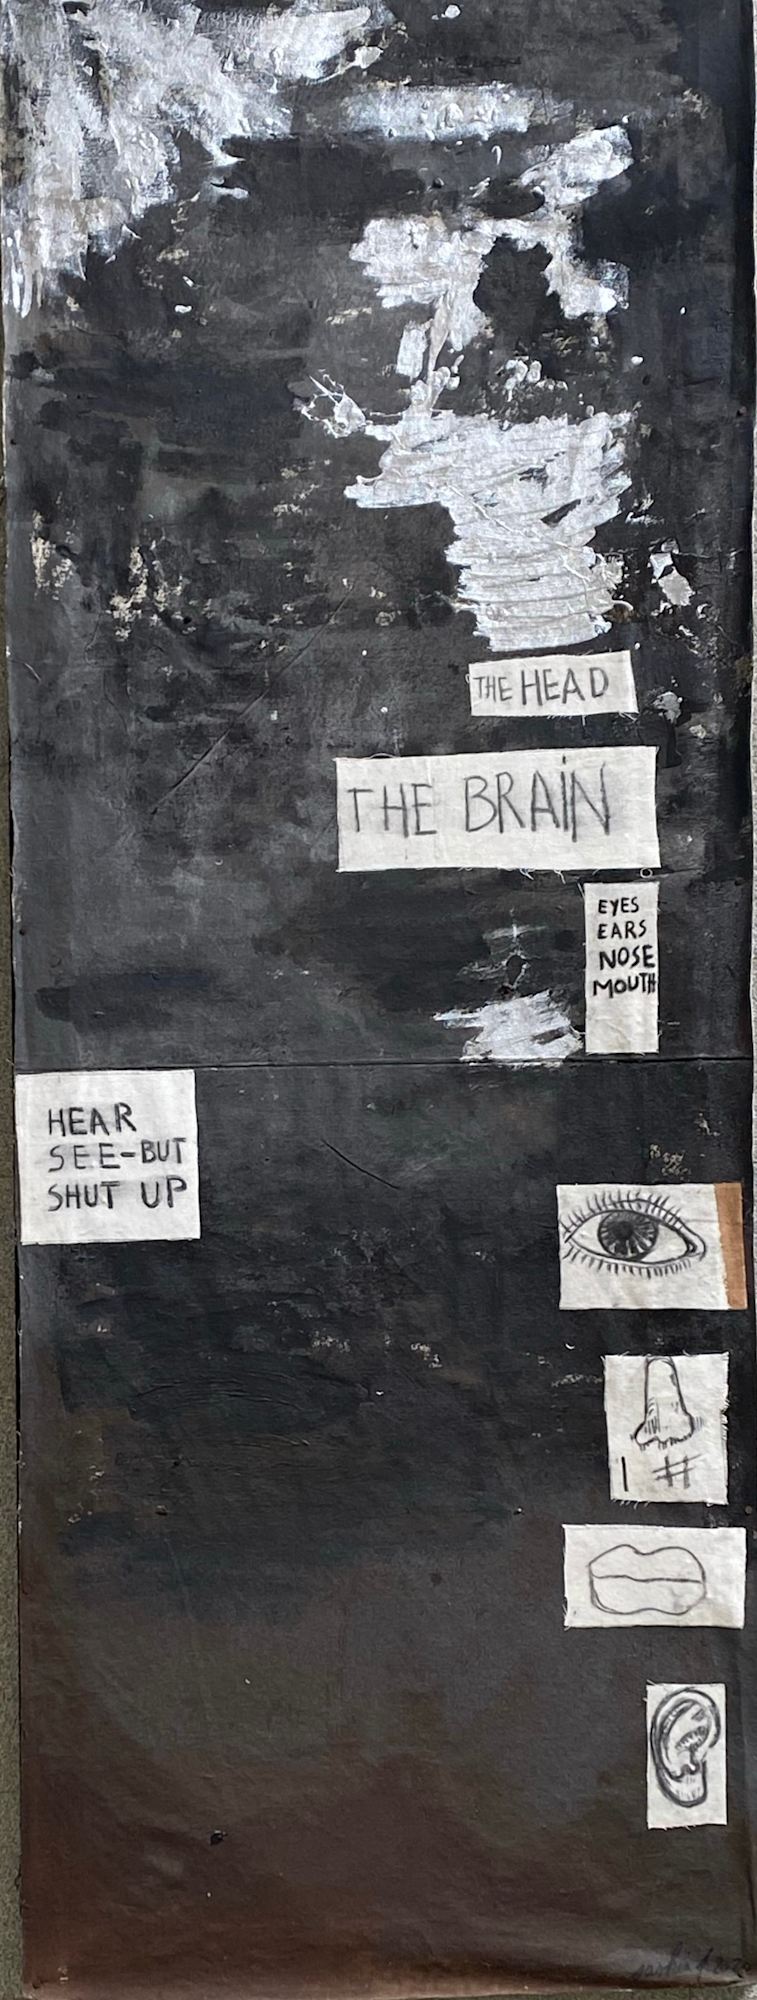 THE HEAD
THE BRAiN
EYES
EARS
NOSE
MOUTH
HEAR
SEE-BUT
SHUT UP
1 #